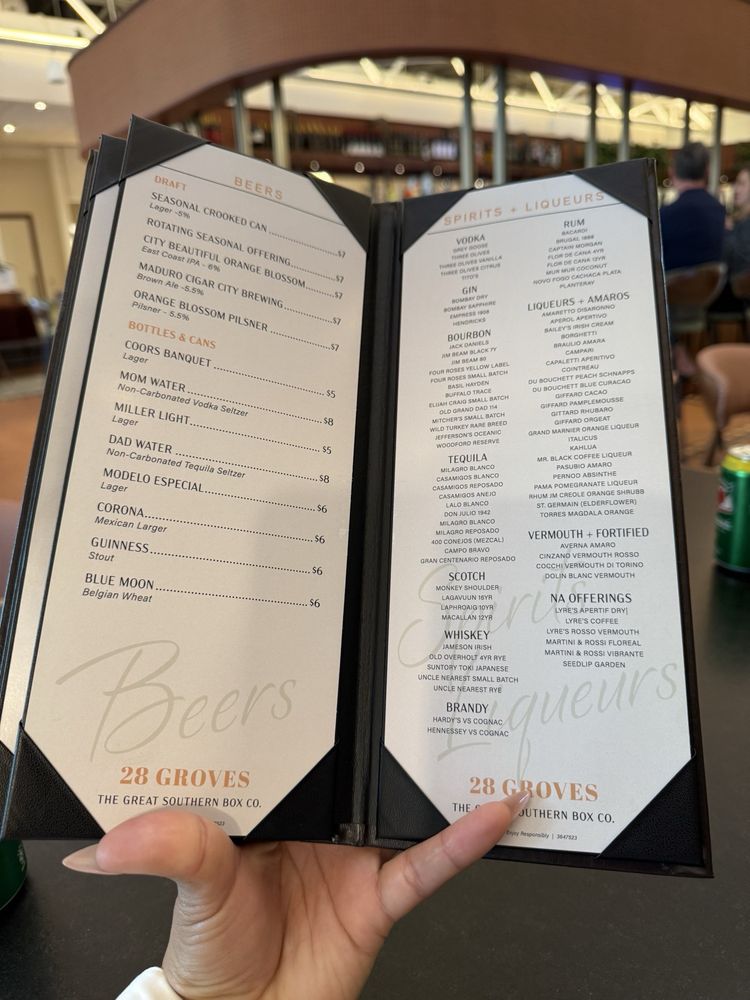 BEERS
DRAFT
SEASONAL CROOKED CAN $7
Lager -5%
ROTATING SEASONAL OFFERING $7
CITY BEAUTIFUL ORANGE BLOSSOM $7
East Coast IPA - 6%
MADURO CIGAR CITY BREWING $7
Brown Ale -5.5%
ORANGE BLOSSOM PILSNER $7
Pilsner - 5.5%
BOTTLES & CANS
COORS BANQUET $5
Lager
MOM WATER $8
Non-Carbonated Vodka Seltzer
MILLER LIGHT $5
Lager
DAD WATER $8
Non-Carbonated Tequila Seltzer
MODELO ESPECIAL $6
Lager
CORONA $6
Mexican Larger
GUINNESS $6
Stout
BLUE MOON $6
Belgian Wheat
Beers
28 GROVES
THE GREAT SOUTHERN BOX CO.
SPIRITS + LIQUEURS
VODKA
GREY GOOSE
THREE OLIVES
THREE OLIVES VANILLA
THREE OLIVES CITRUS
TITO'S
GIN
BOMBAY DRY
BOMBAY SAPPHIRE
EMPRESS 1908
HENDRICKS
BOURBON
JACK DANIELS
JIM BEAM BLACK 7Y
JIM BEAM 80
FOUR ROSES YELLOW LABEL
FOUR ROSES SMALL BATCH
BASIL HAYDEN
BUFFALO TRACE
ELIJAH CRAIG SMALL BATCH
OLD GRAND DAD 114
MITCHER'S SMALL BATCH
WILD TURKEY RARE BREED
JEFFERSON'S OCEANIC
WOODFORD RESERVE
TEQUILA
MILAGRO BLANCO
CASAMIGOS BLANCO
CASAMIGOS REPOSADO
CASAMIGOS ANEJO
LALO BLANCO
DON JULIO 1942
MILAGRO BLANCO
MILAGRO REPOSADO
400 CONEJOS (MEZCAL)
CAMPO BRAVO
GRAN CENTENARIO REPOSADO
SCOTCH
MONKEY SHOULDER
LAGAVUUN 16YR
LAPHROAIG 10YR
MACALLAN 12YR
WHISKEY
JAMESON IRISH
OLD OVERHOLT 4YR RYE
SUNTORY TOKI JAPANESE
UNCLE NEAREST SMALL BATCH
UNCLE NEAREST RYE
BRANDY
HARDY'S VS COGNAC
HENNESSEY VS COGNAC
RUM
BACARDI
BRUGAL 1888
CAPTAIN MORGAN
FLOR DE CANA 4YR
FLOR DE CANA 12YR
MUR MUR COCONUT
NOVO FOGO CACHACA PLATA
PLANTERAY
LIQUEURS + AMAROS
AMARETTO DISARONNO
APEROL APERTIVO
BAILEY'S IRISH CREAM
BORGHETTI
BRAULIO AMARA
CAMPARI
CAPALETTI APERITIVO
COINTREAU
DU BOUCHETT PEACH SCHNAPPS
DU BOUCHETT BLUE CURACAO
GIFFARD CACAO
GIFFARD PAMPLEMOUSSE
GITTARD RHUBARO
GIFFARD ORGEAT
GRAND MARNIER ORANGE LIQUEUR
ITALICUS
KAHLUA
MR. BLACK COFFEE LIQUEUR
PASUBIO AMARO
PERNOD ABSINTHE
PAMA POMEGRANATE LIQUEUR
RHUM JM CREOLE ORANGE SHRUBB
ST. GERMAIN (ELDERFLOWER)
TORRES MAGDALA ORANGE
VERMOUTH + FORTIFIED
AVERNA AMARO
CINZANO VERMOUTH ROSSO
COCCHI VERMOUTH DI TORINO
DOLIN BLANC VERMOUTH
NA OFFERINGS
LYRE'S APERTIF DRY|
LYRE'S COFFEE
LYRE'S ROSSO VERMOUTH
MARTINI & ROSSI FLOREAL
MARTINI & ROSSI VIBRANTE
SEEDLIP GARDEN
Spirits
Liqueurs
28 GROVES
THE SOUTHERN BOX CO.
Enjoy Responsibly | 3647523